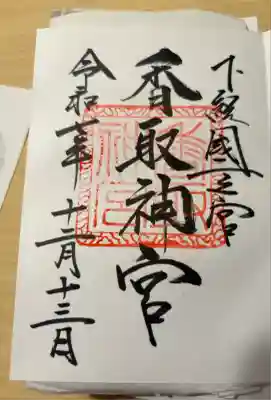 下総國一之宮
香取神宮
令和七年十二月十三日